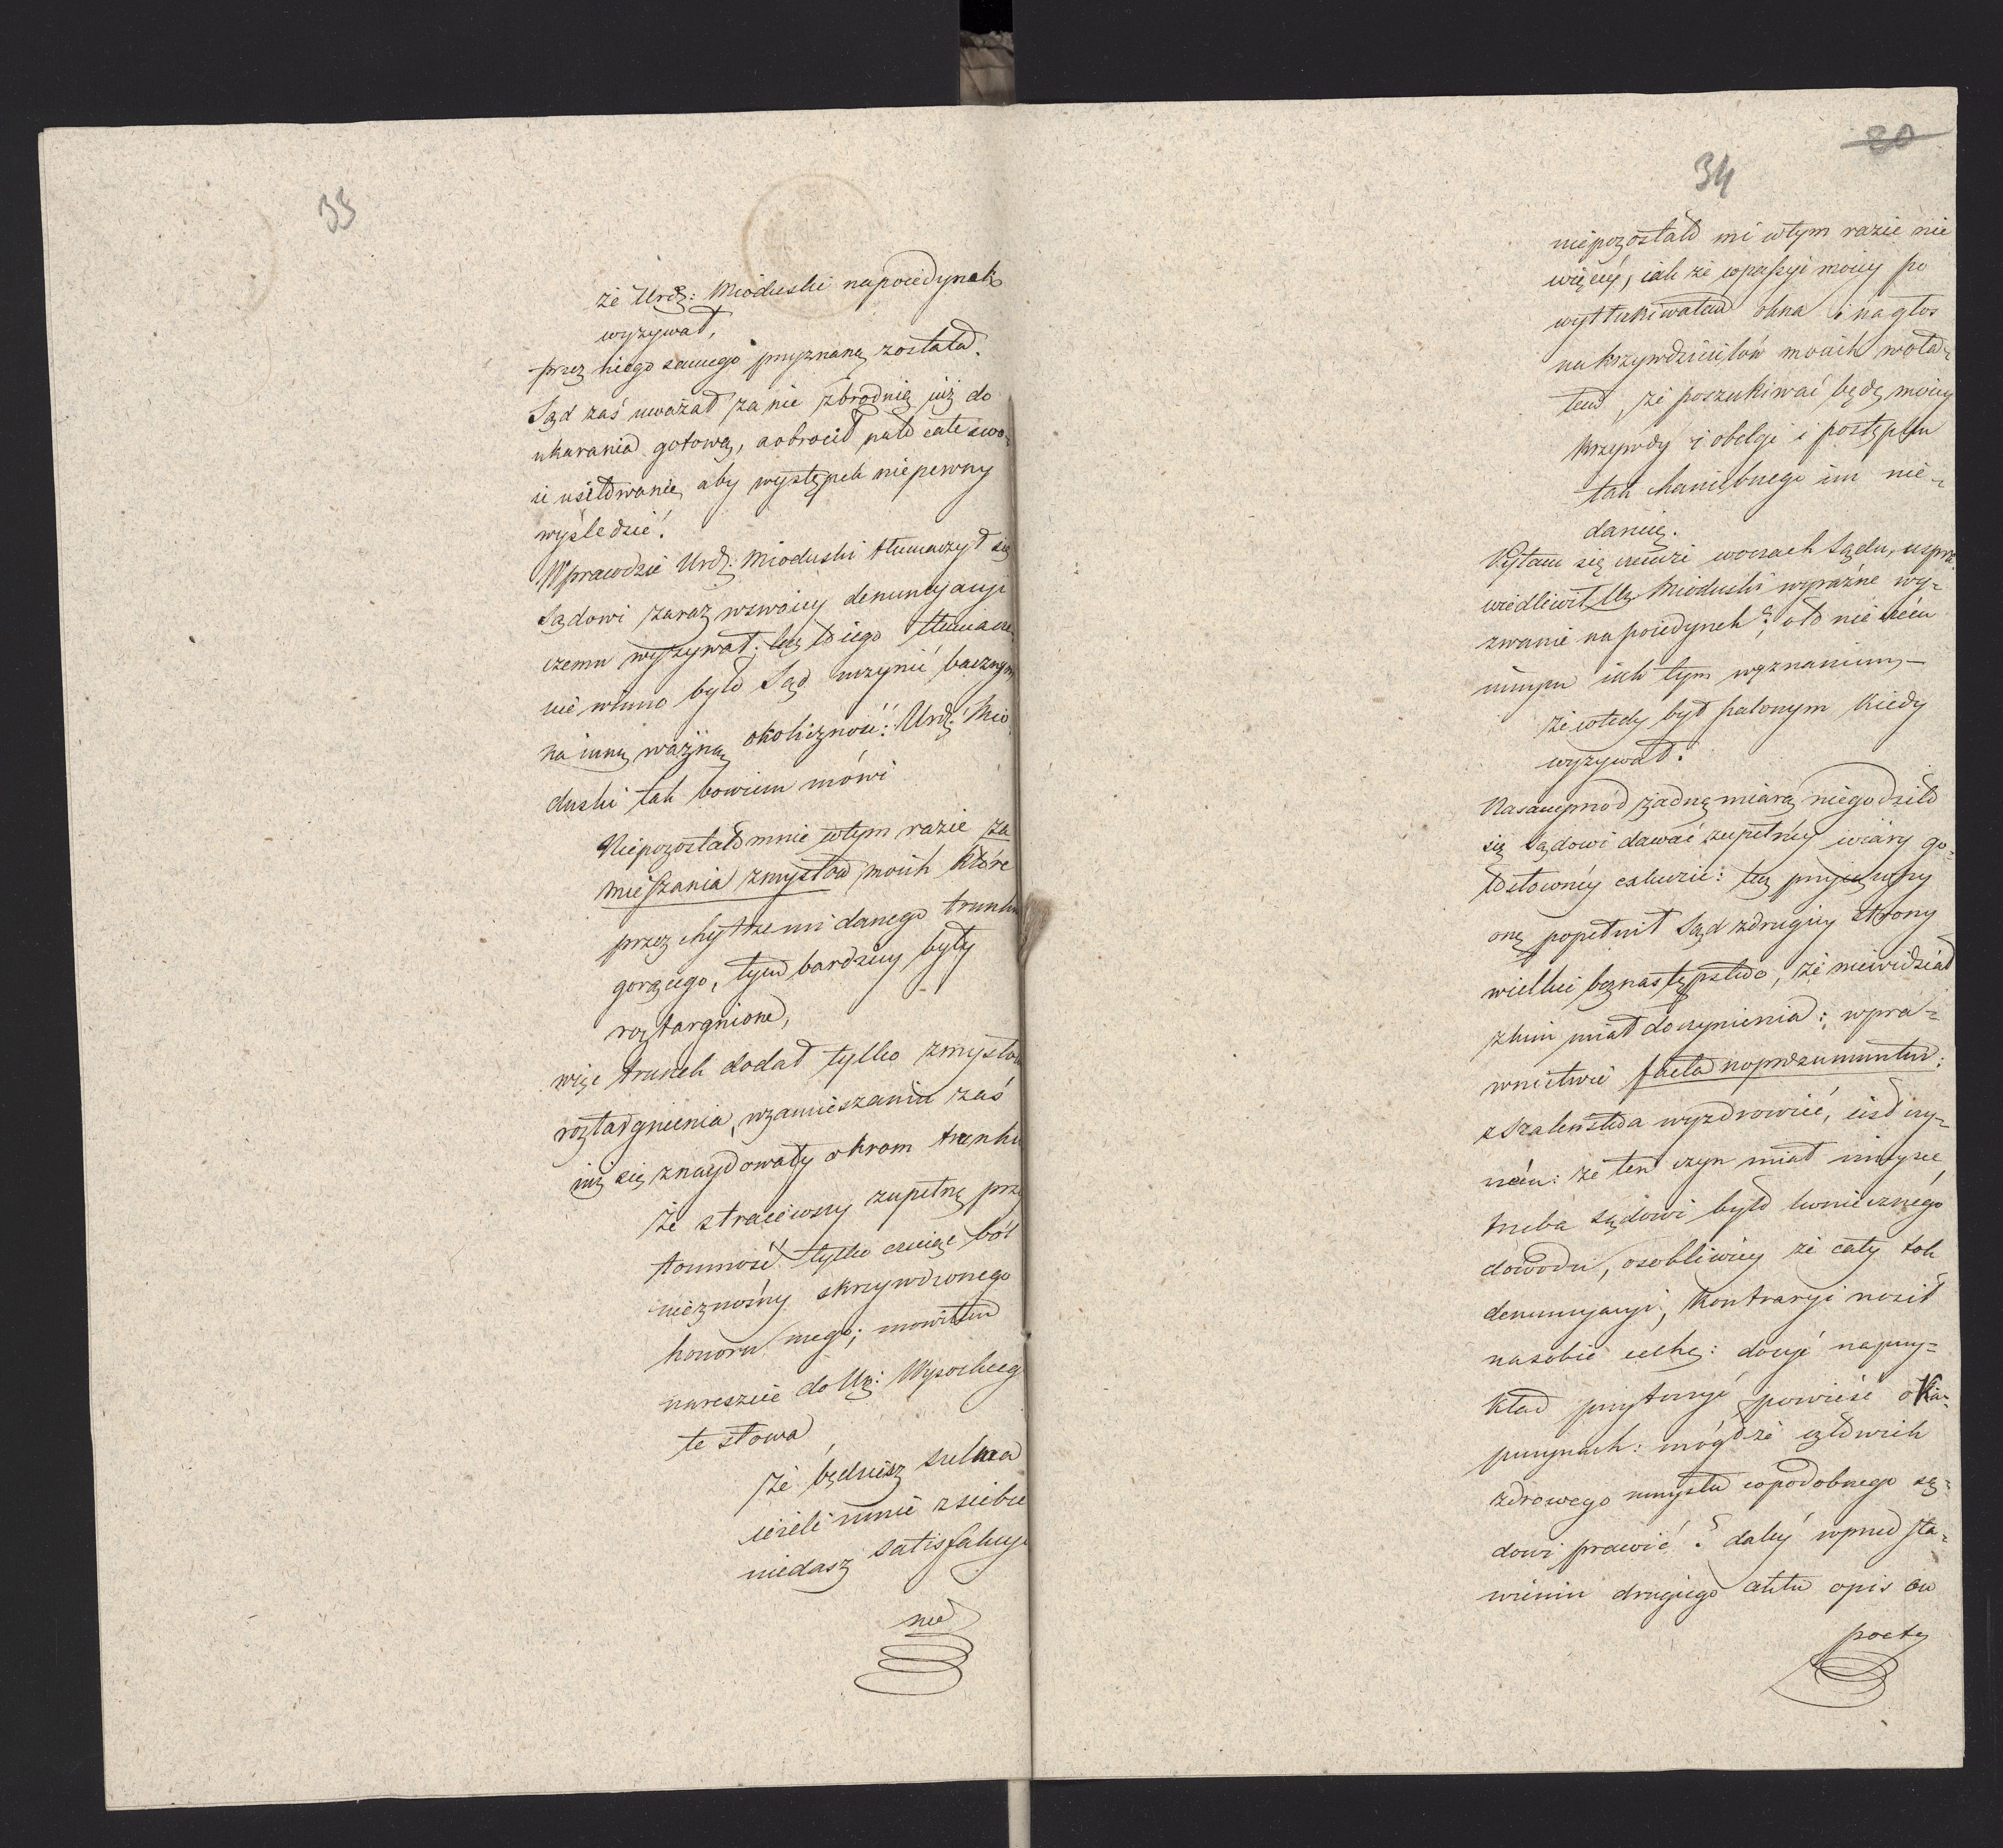 33
że Urdz: Mioduski napoiedynek
wyzywał,
przez niego samego przyznaną została.
Sąd zaś uważał za nic zbrodnię iuż do
ukarania gotową, a obrocił całe swo-
ie usiłowanie, aby występek niepewny
wyśledzić!
Wprawdzie Urdz: Mioduski tłumaczył się
Sądowi zaraz wswoiey denuncyacyi
czemu wyzywał: lecz to iego tłumacze-
nie winno było Sąd uczynić bacznym
na inną ważną okoliczność: Urdz: Mio-
duski tak bowiem mówi
Niepozostało mnie wtym razie za
mieszania zmysłów moich które
przez chytrze mi danego trunku
gorącego, tym bardziey były
roztargnione,
więc trunek dodał tylko zmysłom
roztargnienia, wzamieszaniu zaś
iuż się znaydowały okrom trunku
że straciwszy zupełną przy
tomność tylko czuiąc ból
nieznośny skrzywdzonego
honoru mego; mowiłem
nareszcie do Ur: Wysockiego
te słowa
że będziesz
ieżeli mnie zsiebie
niedasz satisfakcyi
nie
20
34
niepozostało mi wtym razie nic
więcéy, iak że wpassyi moiéy po
wytłukiwałem okna i nagłos
na krzywdzicielów moich woła-
łem, że poszukiwać będę moiéy
krzywdy i obelgi i postępku
tak haniebnego im nie-
daruię.
Pytam się czemże woczach Sądu, uspra-
wiedliwił Ur Mioduski wyraźne wy-
zwanie na poiedynek?; oto nie czém
innym iak tym wyznaniem,—
że wtedy był palonym kiedy
wyzywał.
Nasamprzód żadną miarą niegodziło
się Sądowi dawać zupełnéy wiary go-
łosłownéy exkuzie: lecz przyiąwszy
onę popełnił Sąd zdrugiéy strony
wielkie beznastępstwo, że niewidział
zkim miał do czynienia: wpra-
wnictwie facta nopræsumuntur:
z szaleństwa wyzdrowieć, iest czy-
nem: że ten czyn miał mieysce
trzeba sądowi było koniecznégo
dowodu, osobliwiéy że cały tok
denuncyacyi, kontraryi nosił
nasobie cechę: dosyć naprzy-
kład przytoczyć powieść o Ka-
pucynach: mógłże człowiek
zdrowego umysłu copodobnego są-
dowi prawić? daléy wprzedsta-
wieniu drugiego aktu opis
poety